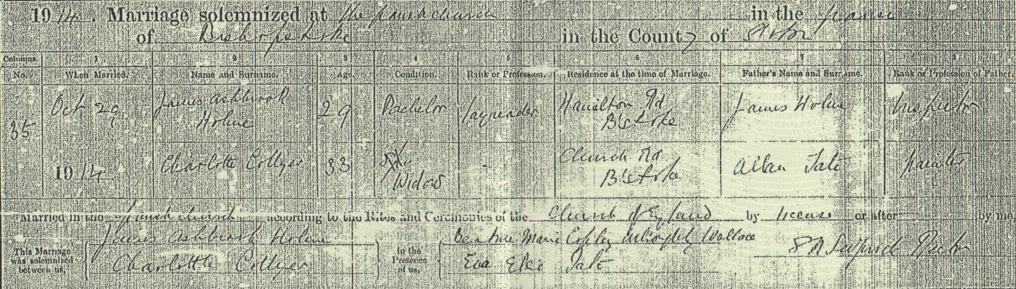 1914. Marriage solemnized at the parish church in the
of Bishopstoke in the County of
Columns. 1 2 3 4 5 6 7 8
No. When Married. Name and Surname. Age. Condition. Rank or Profession. Residence at the time of Marriage. Father's Name and Surname. Rank or Profession of Father.
35 Oct 29 James Ashbrook Holme 29 Bachelor layreader Hamilton Rd B'stoke James Holme Inspector
1914 Charlotte Collyer 33 Widow - Church Rd B'stoke Allan Tate painter
Married in the parish church according to the Rites and Ceremonies of the Church of England by license or after by me,
This Marriage was solemnized between us, James Ashbrook Holme In the Presence of us, Beatrice Marie Wallace Rector
Charlotte Collyer Eva Tate